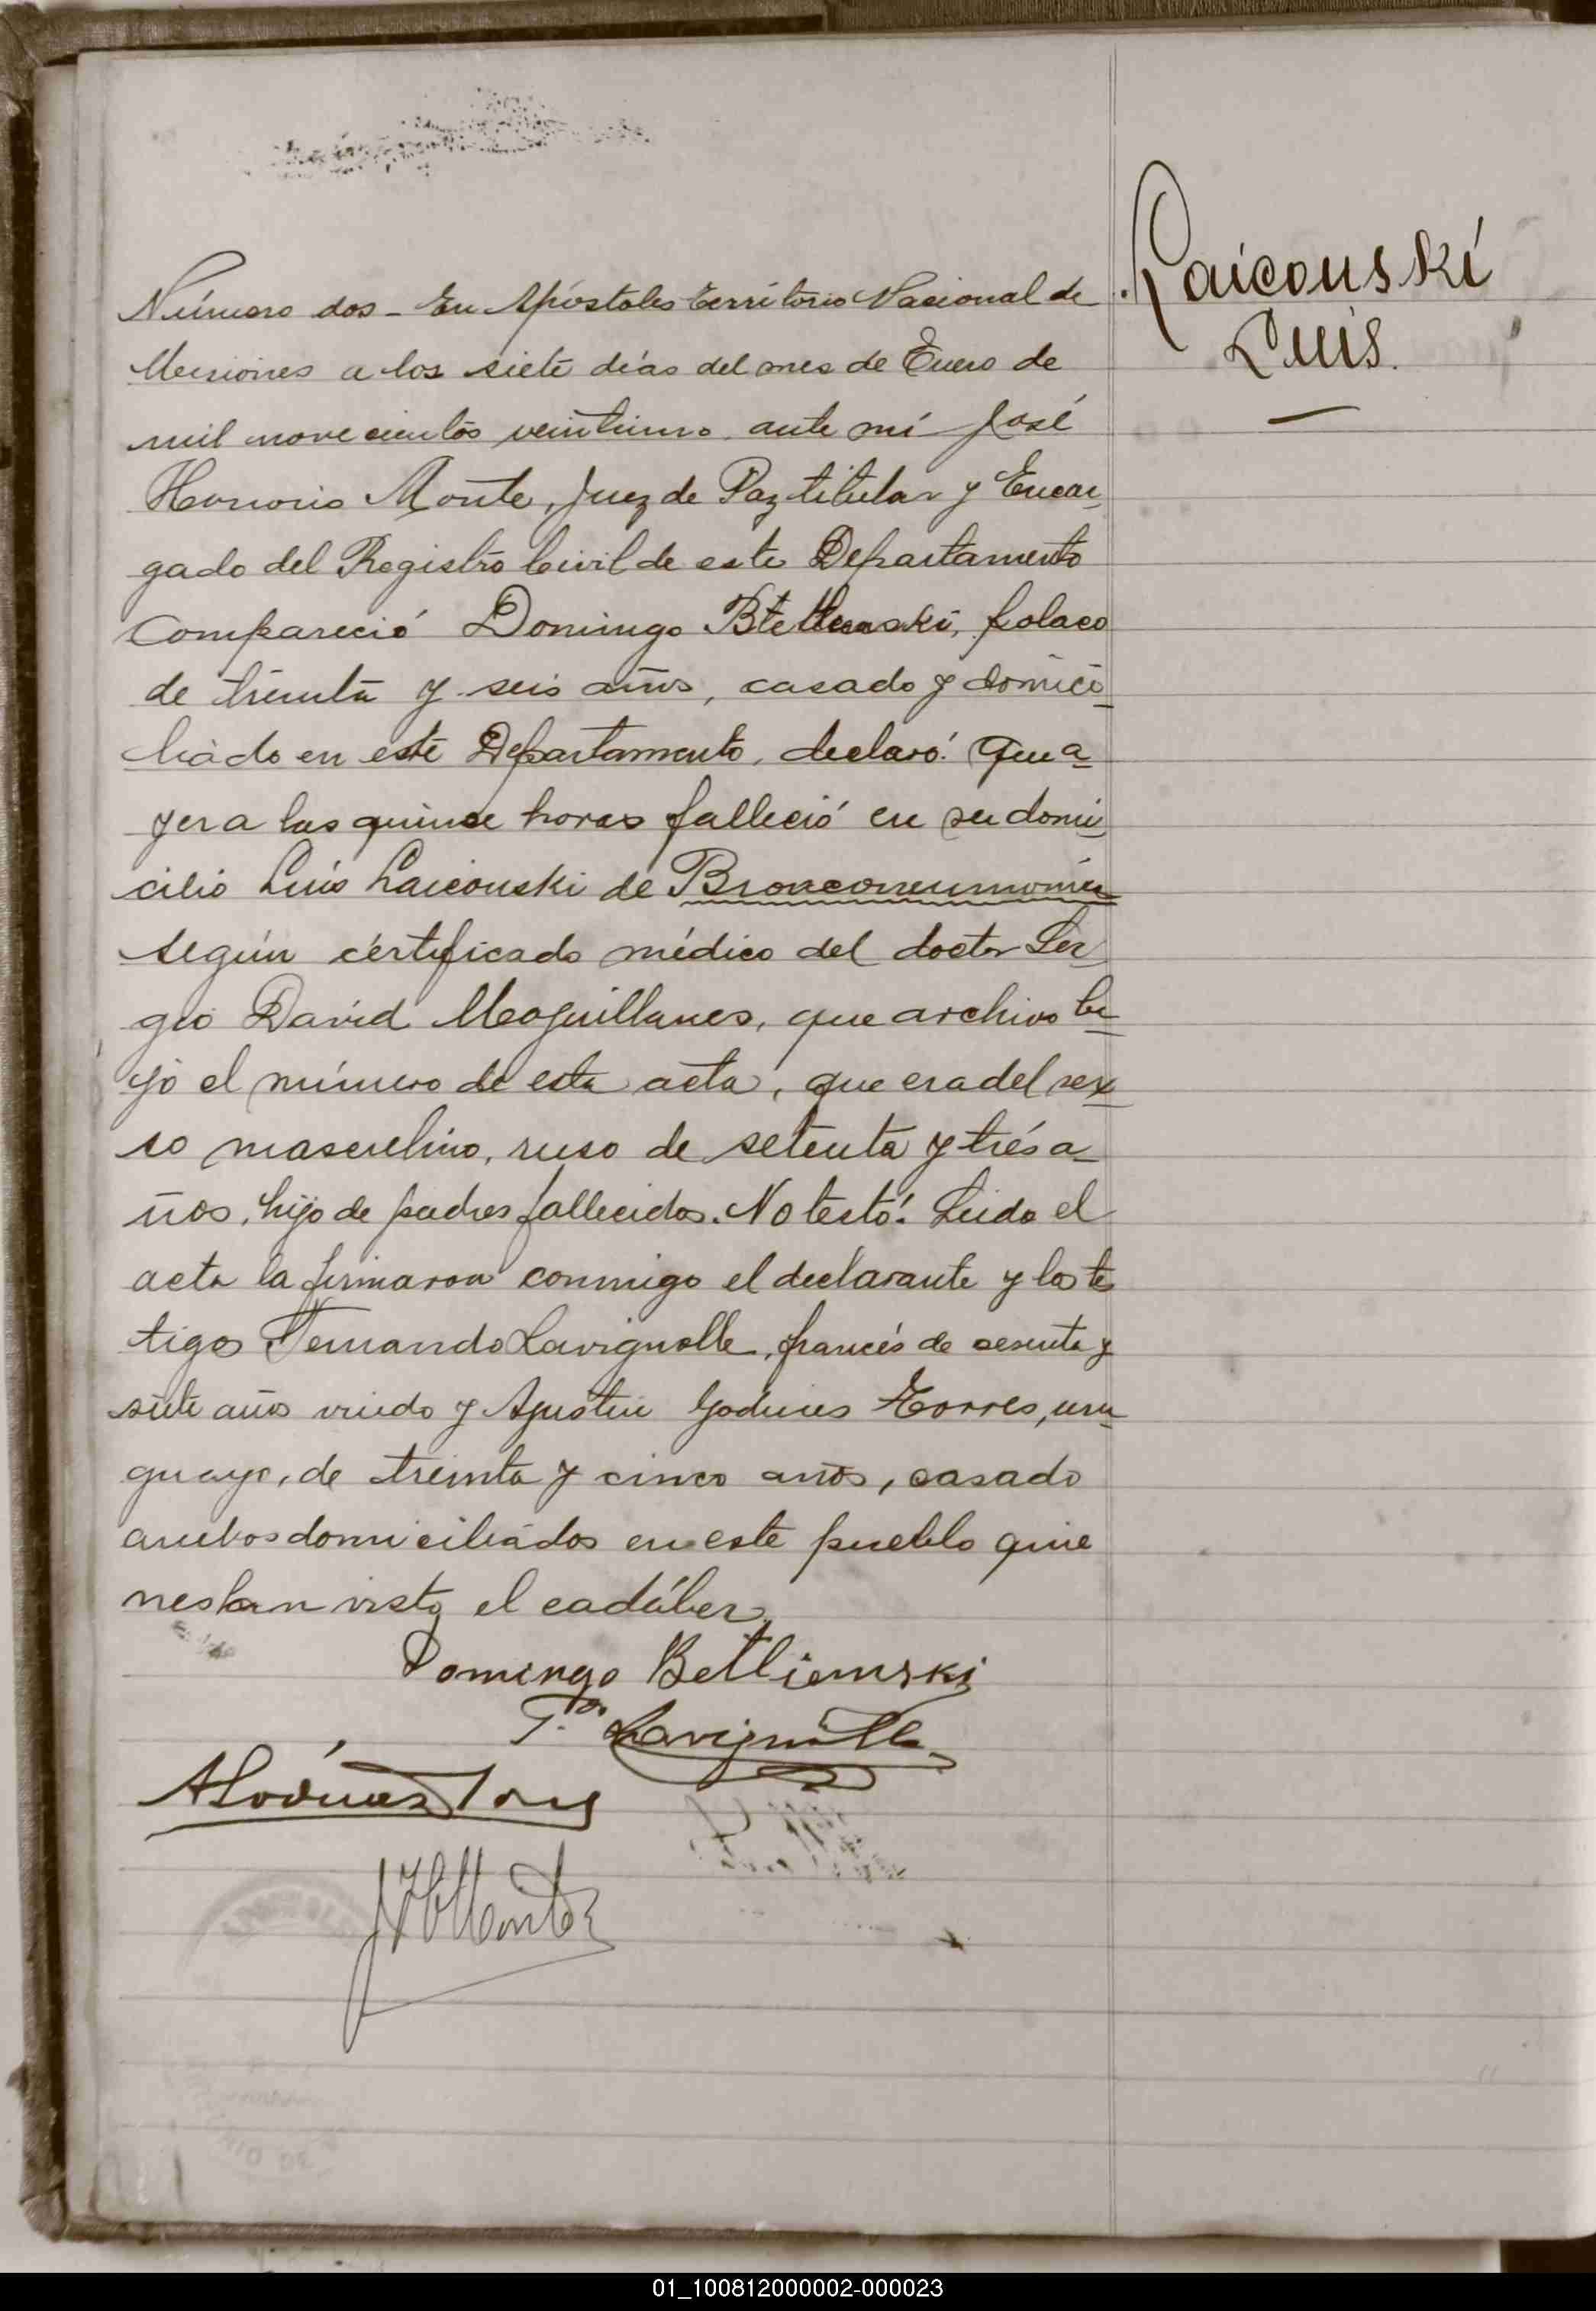 Laicouski
Luis.
Número dos - En Apóstoles Territorio Nacional de
Misiones a los siete días del mes de Enero de
mil novecientos veintiuno ante mí José
Honorio Monte, Juez de Paz titular y Encar
gado del Registro Civil de este Departamento
Compareció Domingo polaco
de treinta y seis años, casado y domici
liado en este Departamento, declaró: Que a
yer a las quince horas falleció en su domi
cilio Luis Laicouski de Bronconeumonía
según certificado médico del doctor Ser
gio David Magullanes, que archivo ba
jo el número de esta acta, que era del sex
so masculino, ruso de setenta y trés a
ños, hijo de padres fallecidos. No testó: Leida el
acta la firmaron conmigo el declarante y los tes
tigos Fernando Lavignolle, francés de sesenta y
siete años viudo y Agustin Godines Torres, uru
guayo, de treinta y cinco años, casado
ambos domiciliados en este pueblo quie
nes han visto el cadáber.
Domingo Betliemski
F.do Lavignolle
A Godines Torres
J H Monte
01_100812000002-000023